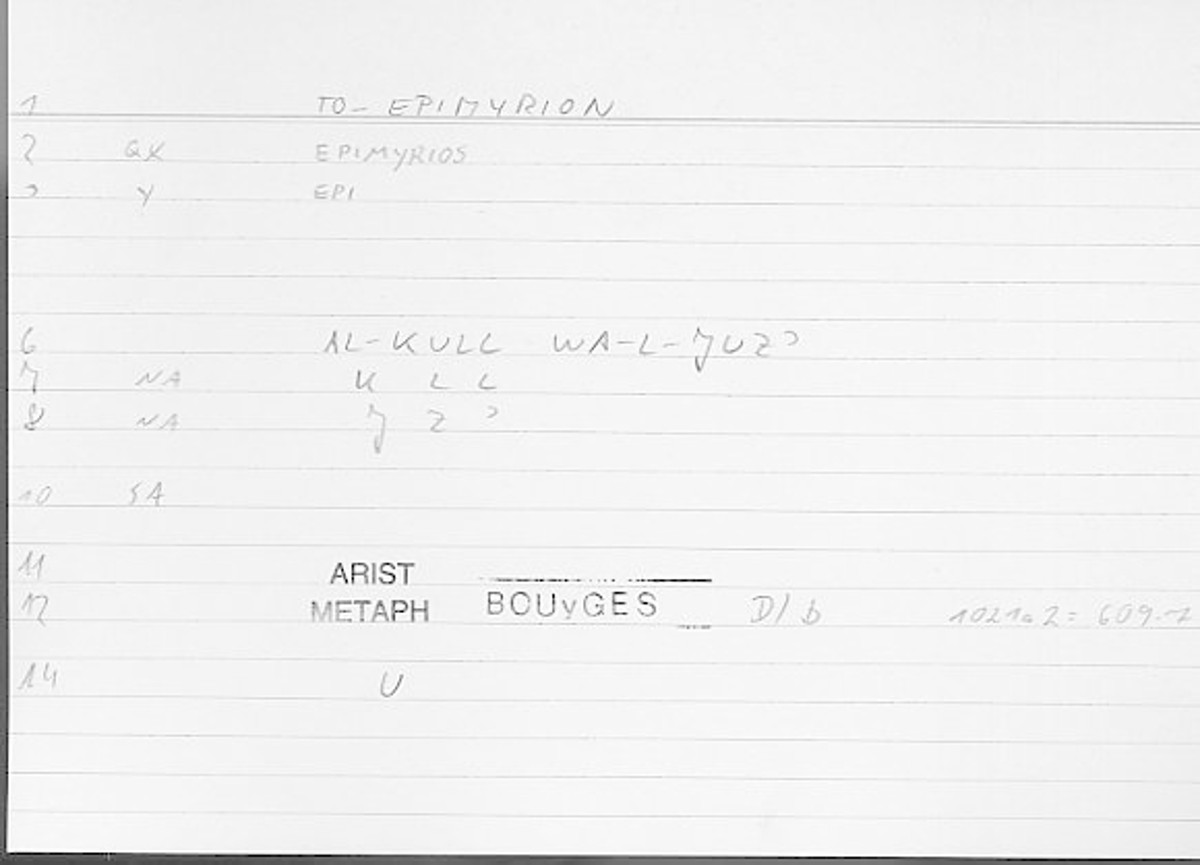 1 TO- EPIMYRION
2 GX EPIMYRIOS
3 Y EPI
6 AL-KULL WA-L-JUZʾ
7 NA K L L
8 NA J Z ʾ
10 SA
11 ARIST
12 METAPH BOUyGES D/b 1021a2= 609.7
14 U